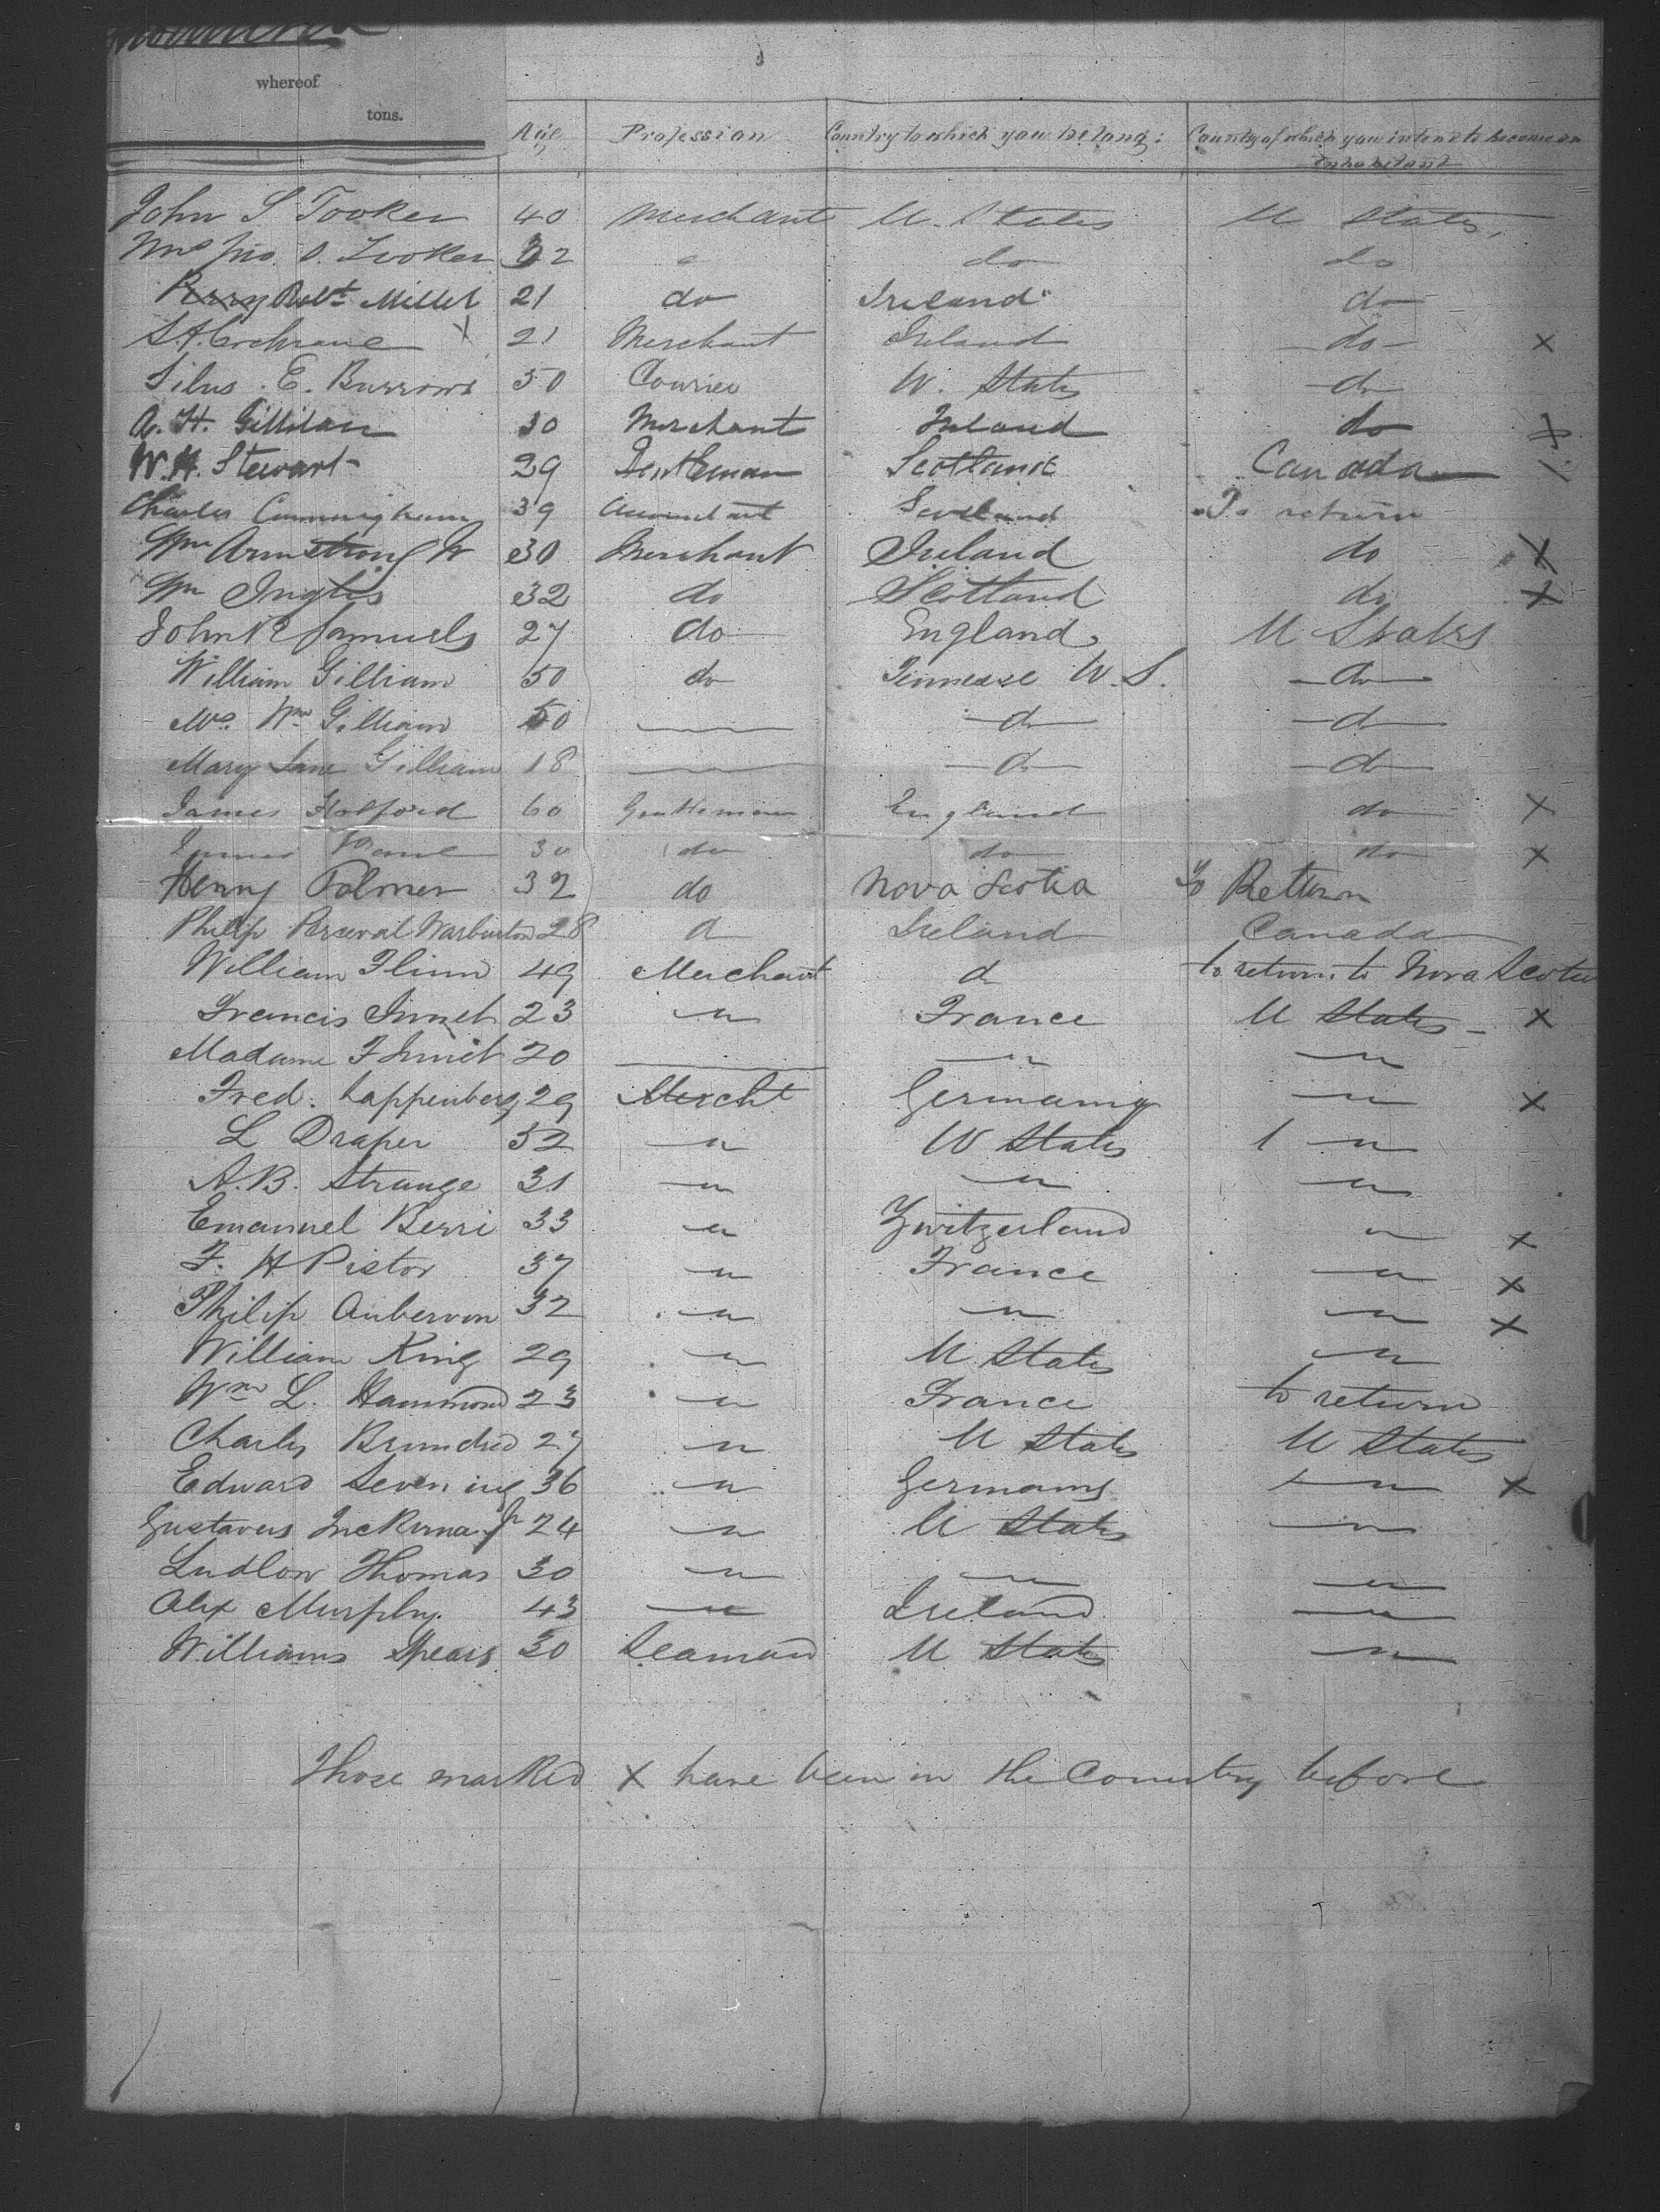 whereof
tons.
Age Profession Country to which you belong: Country of which you intend to become an
inhabitant
John S Tooker 40 Merchant U. States U States,
Mrs Jno. S. Tooker 32 do do
Perry Robt Miller 21 do Ireland do
S.A. Cochrane X 21 Merchant Ireland do X
Silus E. Burrows 50 Courier U. States do
A. H. Gillilan 30 Merchant Ireland do X
W. H. Stewart 29 Gentleman Scotland Canada
Charles Cunningham 39 Accountant Scotland To return
Wm Armstrong Jr 30 Merchant Ireland do X
Wm Inglis 32 do Scotland do X
John Samuels 27 do England U States
William Gilliam 50 do Tinnesse U. S. do
Mrs. Wm Gilliam 50 do do
Mary Jane Gilliam 18 do do
James Holford 60 Gentleman England do X
30 do do do X
Henry Palmer 32 do Nova Scotia To Return
Philip Perceval Warburton 28 d Ireland Canada
William Flinn 49 Merchant d to return to Nova Scotia
Francis 23 " France U States X
Madame F 20 " "
Fred. Lappenberg 29 Mercht Germany " X
L Draper 52 " U States "
A. B. Strange 31 " " "
Emanuel Berri 33 " Zwitzerland " X
F. H Pistor 37 " France " X
Philip Aubervon 32 " " " X
William King 29 " U States "
Wm L. Hammond 23 " France to return
Charles Brundred 27 " U States U States
Edward Severing 36 " Germany " X
Gustavus Jr 24 " U States "
Ludlow Thomas 30 " " "
Alex Murphy. 43 " Ireland "
Williams Spears 30 Seaman U States "
Those marked X have been in the Country before